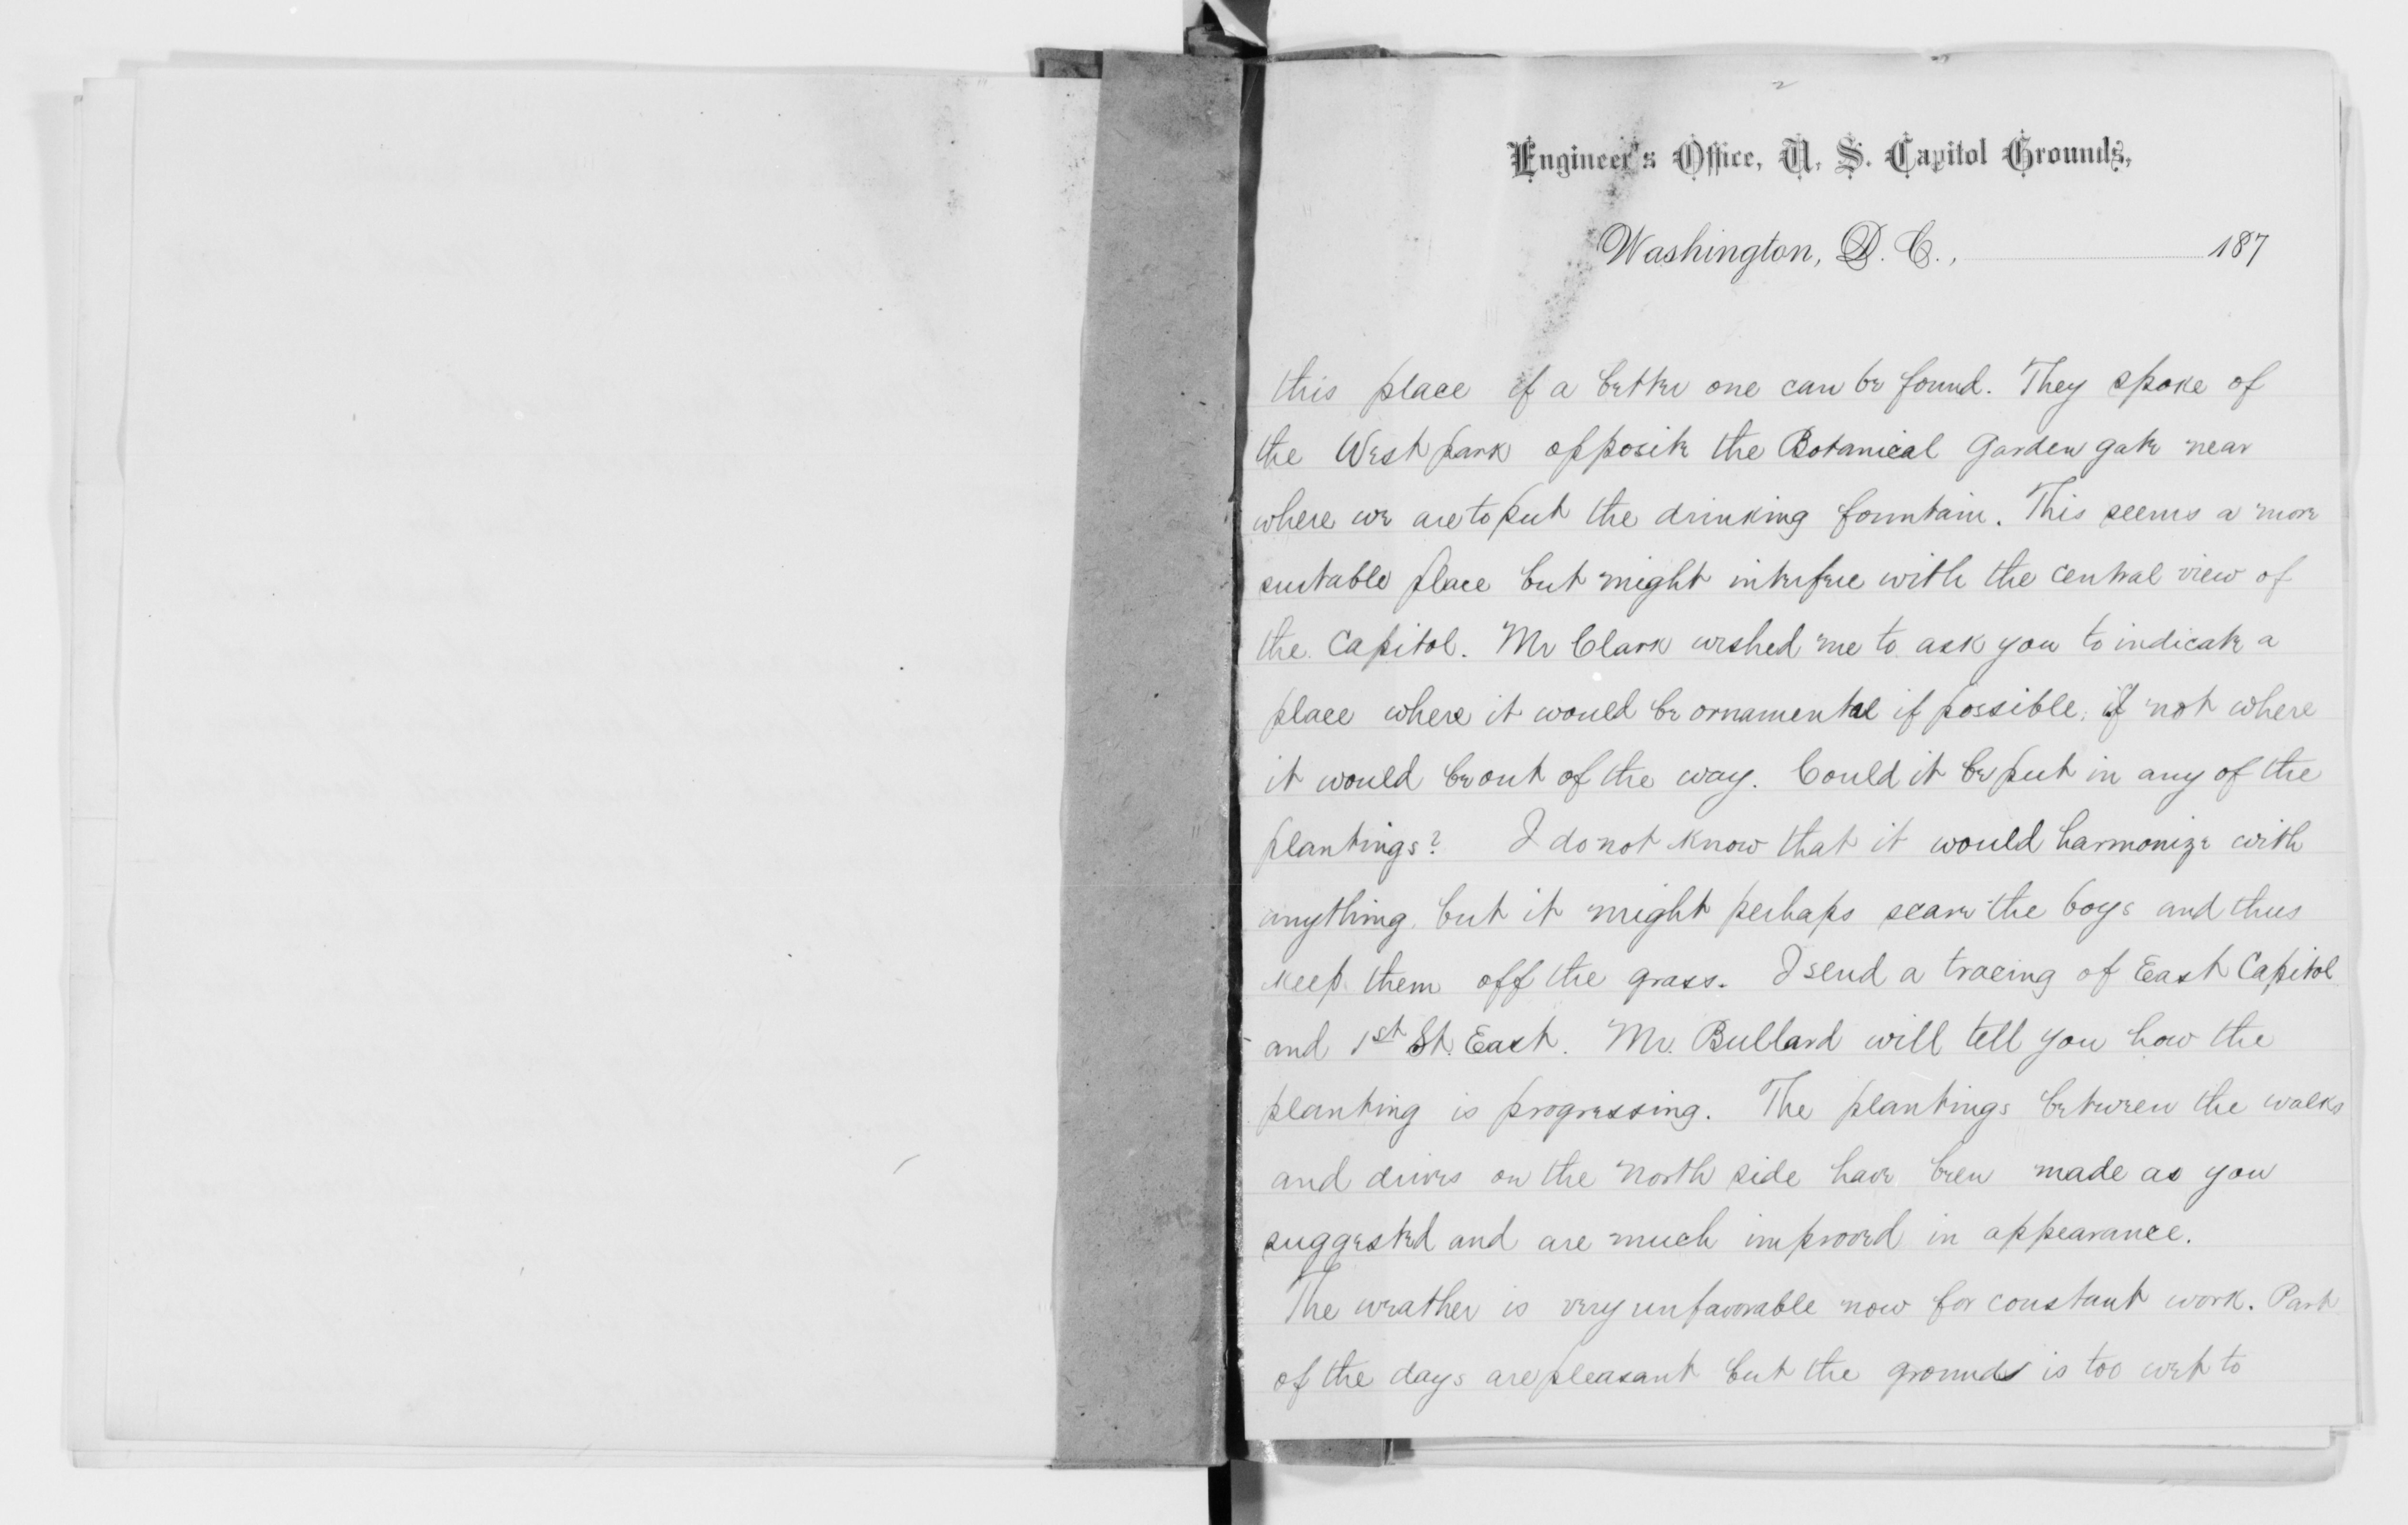 Engineer's Office, U. S. Capitol Grounds,
Washington, D. C., 187
this place if a better one can be found. They spoke of
the West park opposite the Botanical Garden gate near
where we are to put the drinking fountain. This seems a more
suitable place but might interfere with the central view of
the Capitol. Mr Clark wished me to ask you to indicate a
place where it would be ornamental if possible, if not where
it would be out of the way. Could it be put in any of the
plantings? I do not know that it would harmonize with
anything but it might perhaps scare the boys and thus
keep them off the grass. I send a tracing of East Capitol
and 1st St. East. Mr. Bullard will tell you how the
planting is progressing. The plantings between the walks
and drives on the North side have been made as you
suggested and are much improved in appearance.
The weather is very unfavorable now for constant work. Part
of the days are pleasant but the grounds is too wet to